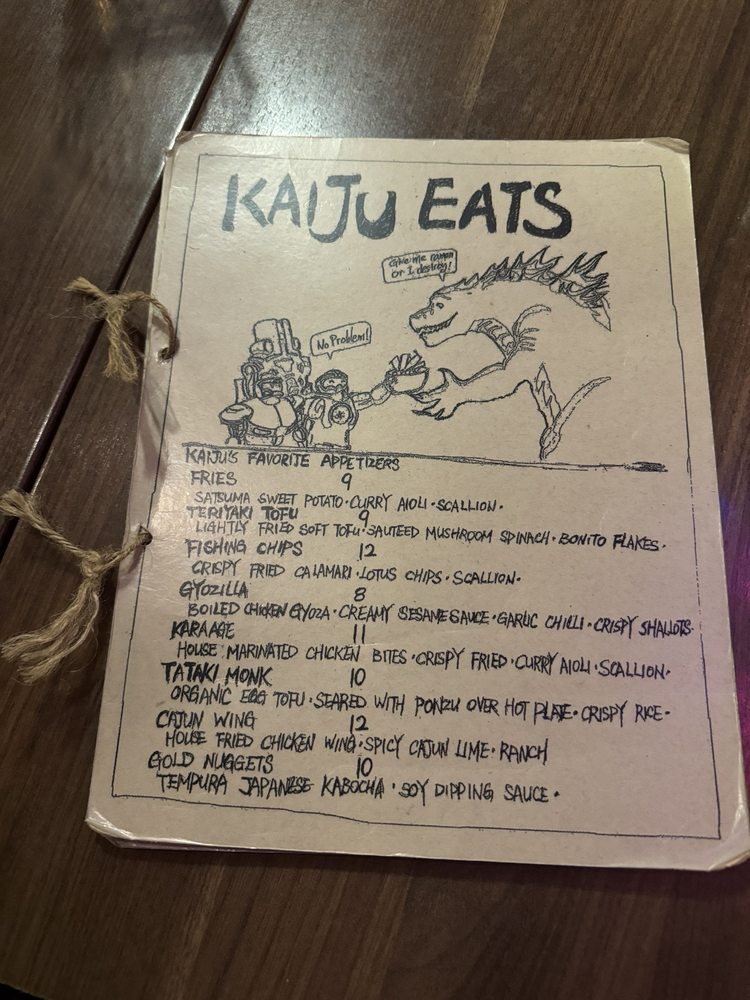 KAIJU EATS
Give me ramen
or I destroy!
No Problem!
KAIJU'S FAVORITE APPETIZERS
FRIES 9
SATSUMA SWEET POTATO · CURRY AIOLI · SCALLION ·
TERIYAKI TOFU 9
LIGHTLY FRIED SOFT TOFU · SAUTEED MUSHROOM SPINACH · BONITO FLAKES ·
FISHING CHIPS 12
CRISPY FRIED CALAMARI · LOTUS CHIPS · SCALLION ·
GYOZILLA 8
BOILED CHICKEN GYOZA · CREAMY SESAME SAUCE · GARLIC CHILLI · CRISPY SHALLOTS ·
KARAAGE 11
HOUSE MARINATED CHICKEN BITES · CRISPY FRIED · CURRY AIOLI · SCALLION ·
TATAKI MONK 10
ORGANIC EGG TOFU · SEARED WITH PONZU OVER HOT PLATE · CRISPY RICE ·
CAJUN WING 12
HOUSE FRIED CHICKEN WING · SPICY CAJUN LIME · RANCH
GOLD NUGGETS 10
TEMPURA JAPANESE KABOCHA · SOY DIPPING SAUCE ·